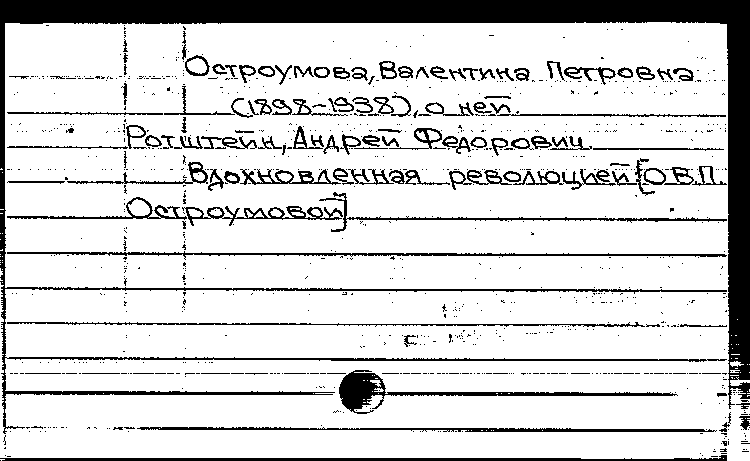 Остроумова, Валентина Петровна
(1898-1938), о ней.
Ротштейн, Андрей Федорович.
Вдохновленная революцией [О В.П.
Остроумовой]